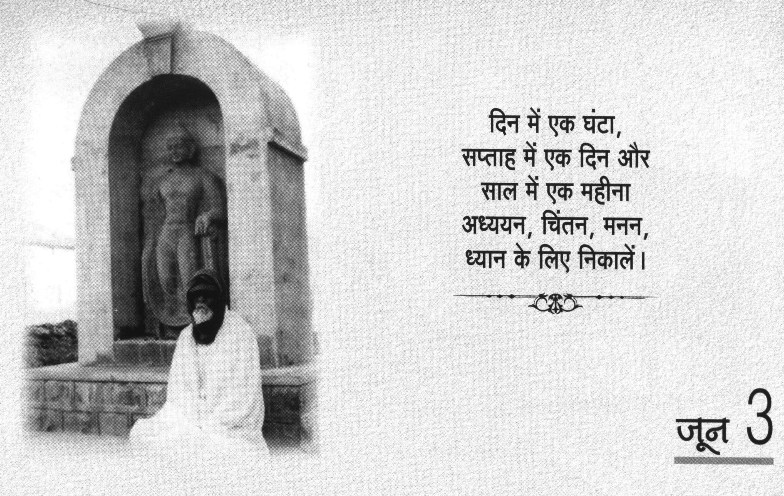 दिन में एक घंटा,
सप्ताह में एक दिन और
साल में एक महीना
अध्ययन, चिंतन, मनन,
ध्यान के लिए निकालें।
जून 3